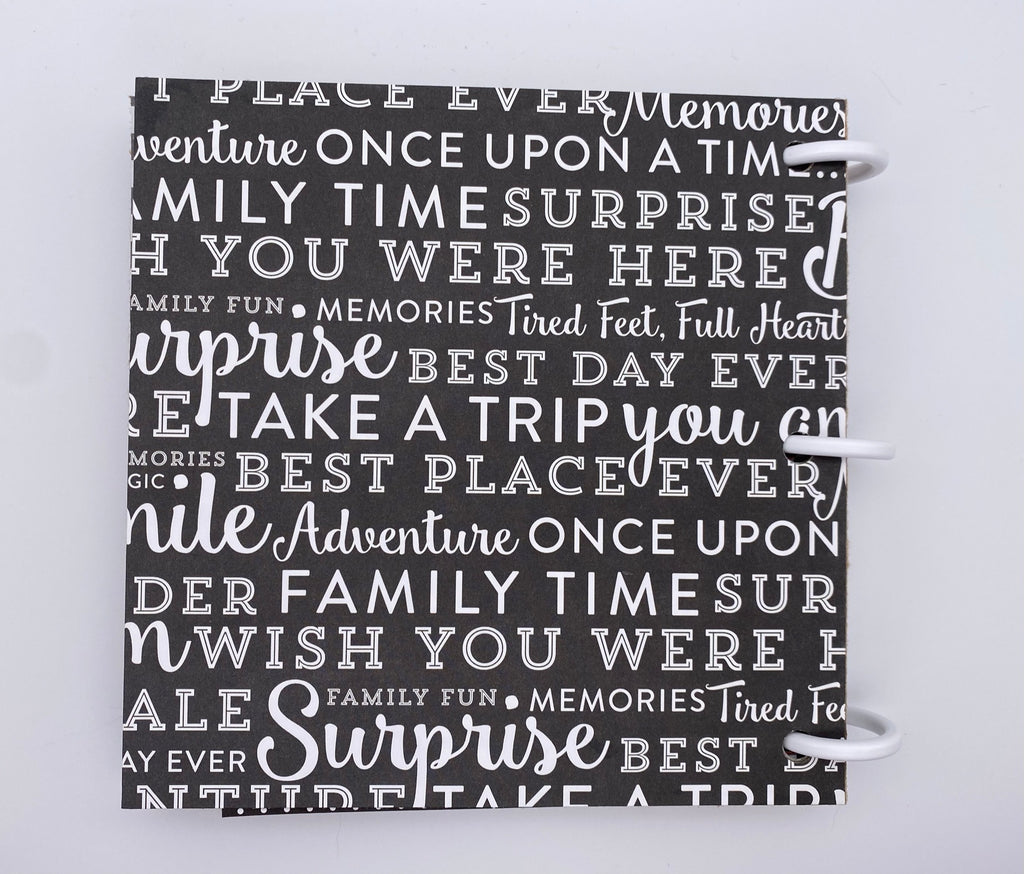 T PLACE EVER Memories
venture ONCE UPON A TIME...
AMILY TIME SURPRISE
H YOU WERE HERE
AMILY FUN MEMORIES Tired Feet, Full Heart
urprise BEST DAY EVER
RE TAKE A TRIP you an
MORIES BEST PLACE EVER
GIC
mile Adventure ONCE UPON
DER FAMILY TIME SUR
n WISH YOU WERE H
ALE FAMILY FUN MEMORIES Tired Fe
AY EVER Surprise BEST DA
NTURE TAKE A TRIP